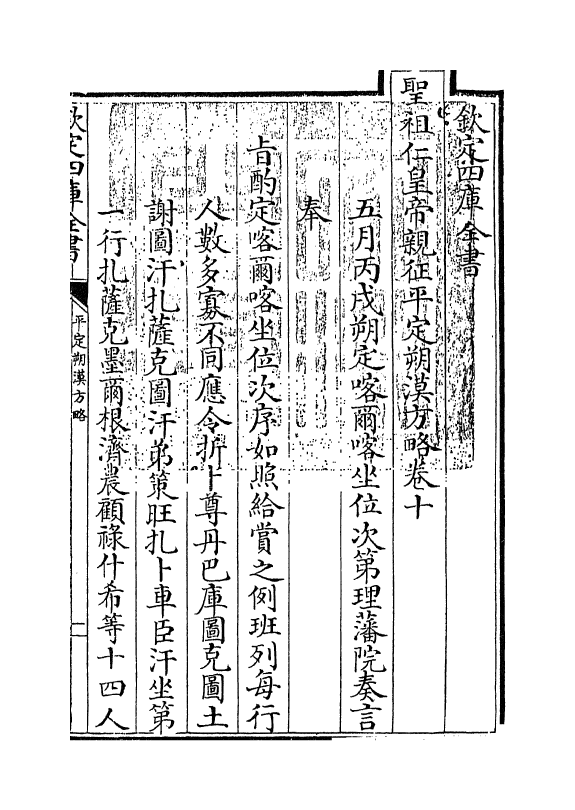 欽定四庫全書
聖祖仁皇帝親征平定朔漠方略卷十
五月丙戌朔定喀爾喀坐位次第理藩院奏言
奉
旨酌定喀爾喀坐位次序如照給賞之例班列每行
人數多寡不同應令折卜尊丹巴庫圖克圖土
謝圖汗扎薩克圖汗弟策旺扎卜車臣汗坐第
一行扎薩克墨爾根濟農顧祿什希等十四人
欽定四庫全書
平定朔漠方略